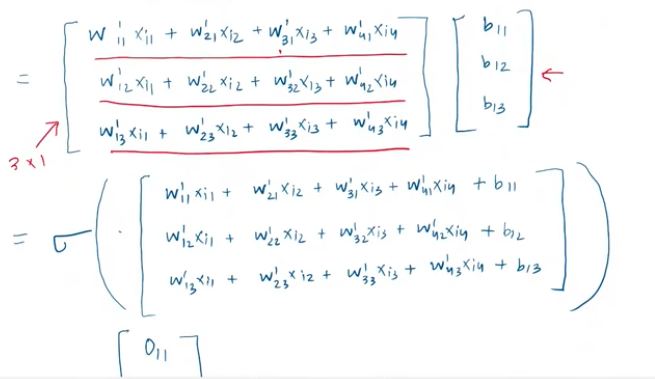 w¹₁₁ xᵢ₁ + w¹₂₁ xᵢ₂ + w¹₃₁ xᵢ₃ + w¹₄₁ xᵢ₄ b₁₁
= w¹₁₂ xᵢ₁ + w¹₂₂ xᵢ₂ + w¹₃₂ xᵢ₃ + w¹₄₂ xᵢ₄ b₁₂ ←
w¹₁₃ xᵢ₁ + w¹₂₃ xᵢ₂ + w¹₃₃ xᵢ₃ + w¹₄₃ xᵢ₄ b₁₃
3 x 1
w¹₁₁ xᵢ₁ + w¹₂₁ xᵢ₂ + w¹₃₁ xᵢ₃ + w¹₄₁ xᵢ₄ + b₁₁
= σ ( w¹₁₂ xᵢ₁ + w¹₂₂ xᵢ₂ + w¹₃₂ xᵢ₃ + w¹₄₂ xᵢ₄ + b₁₂ )
w¹₁₃ xᵢ₁ + w¹₂₃ xᵢ₂ + w¹₃₃ xᵢ₃ + w¹₄₃ xᵢ₄ + b₁₃
O₁₁